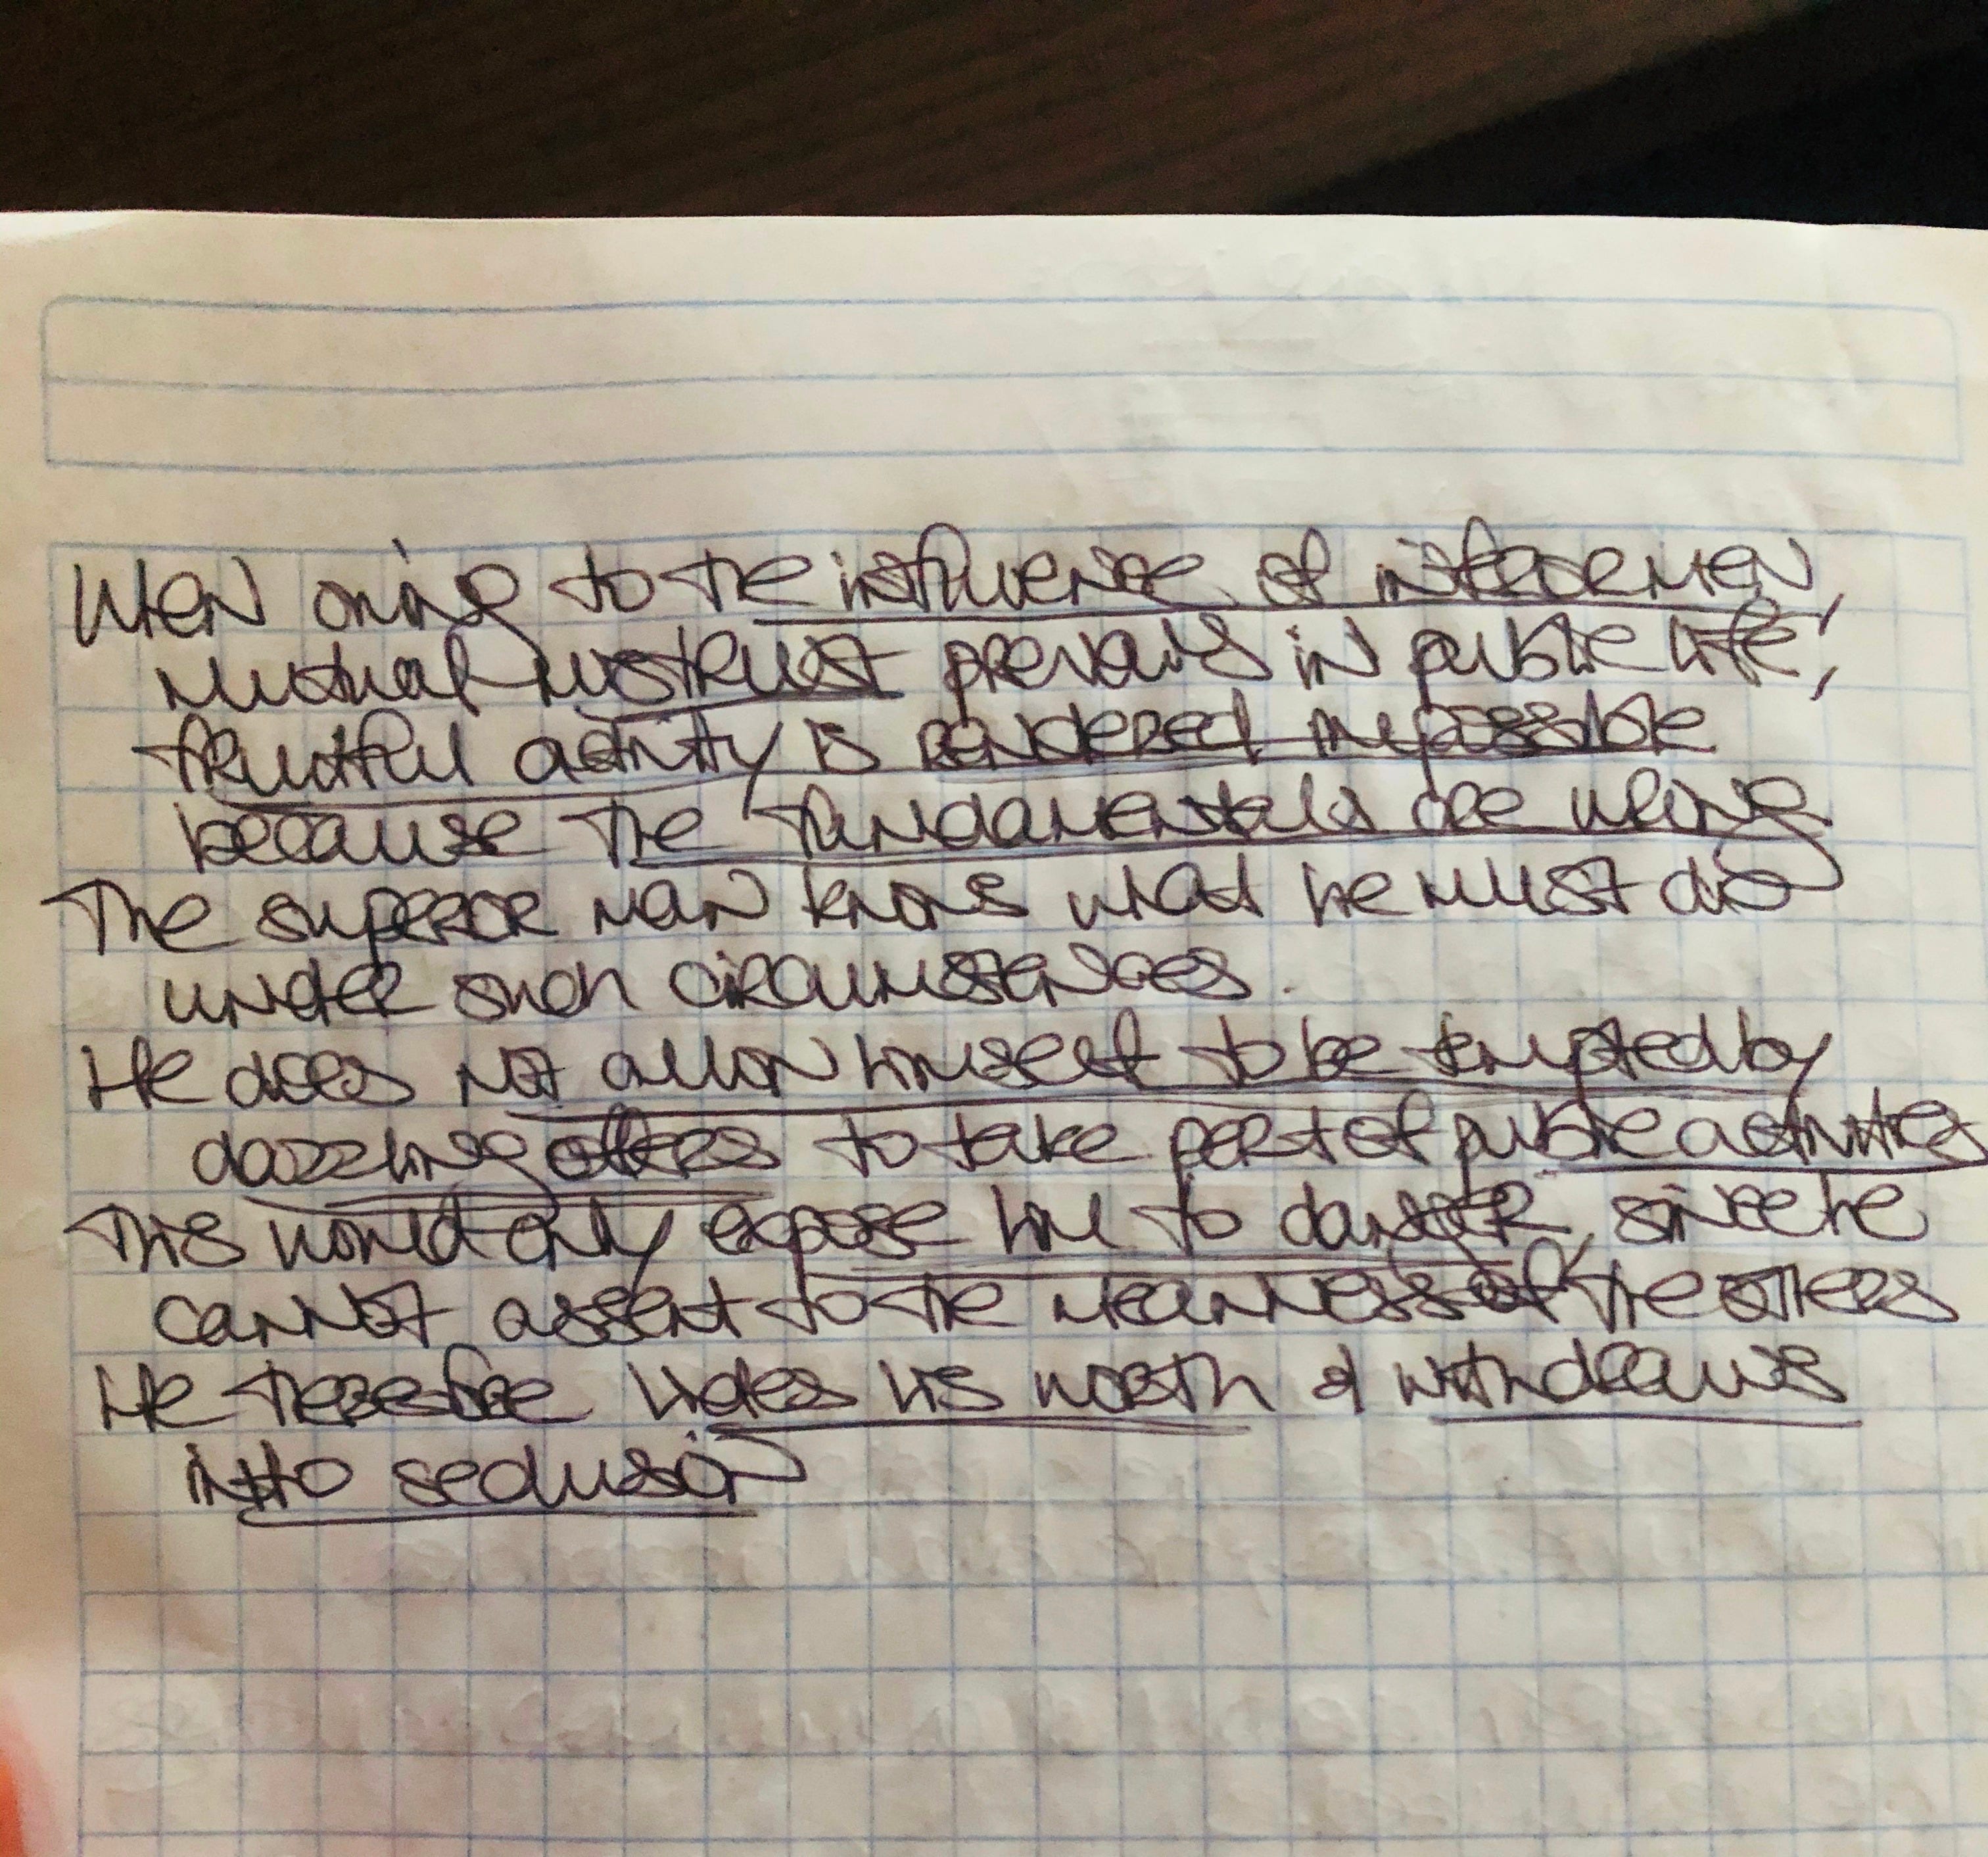 When owing to the influence of inferior men,
mutual mistrust prevails in public life,
fruitful activity is rendered impossible
because the fundamentals are wrong
The superior man knows what he must do
under such circumstances.
He does not allow himself to be tempted by
dazzling offers to take part of public activities
This would only expose him to danger, since he
cannot assent to the meanness of the others
He therefore hides his worth & withdraws
into seclusion